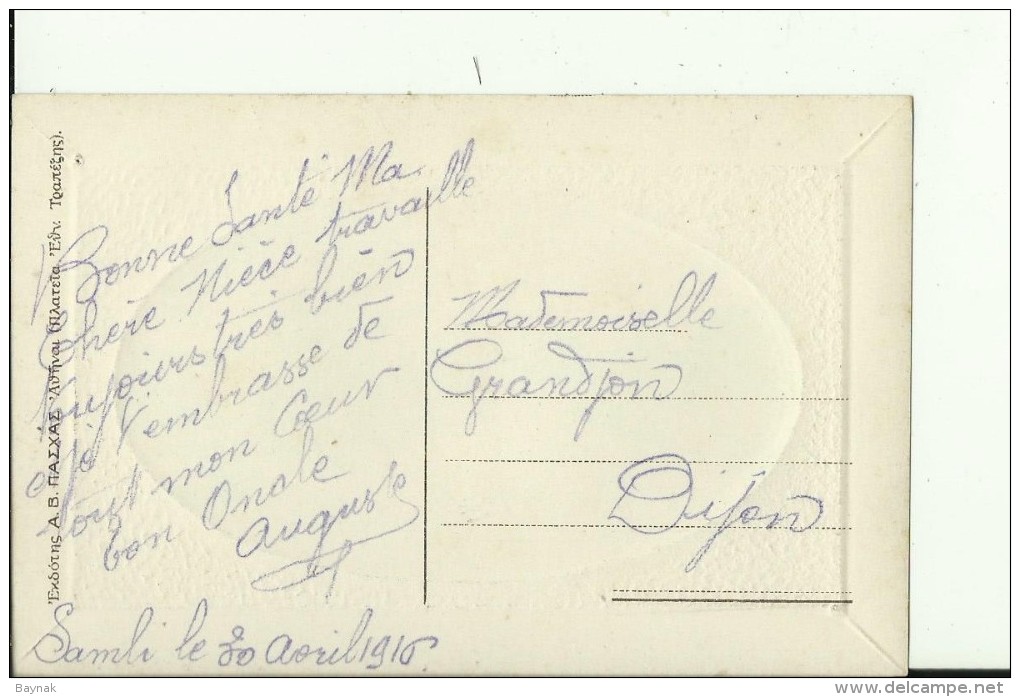 Ἐκδότης Α. Β. ΠΑΣΧΑΣ Ἀθῆναι (Πλατεῖα Ἐθν. Τραπέζης).
Bonne Santé Ma
Chère Nièce travaille
toujours très bien
e je t'embrasse de
tout mon Cœur
bon Oncle
Auguste
Samli le 30 avril 1916
Mademoiselle
Grandjon
Dijon
Baynak
delcampe.net